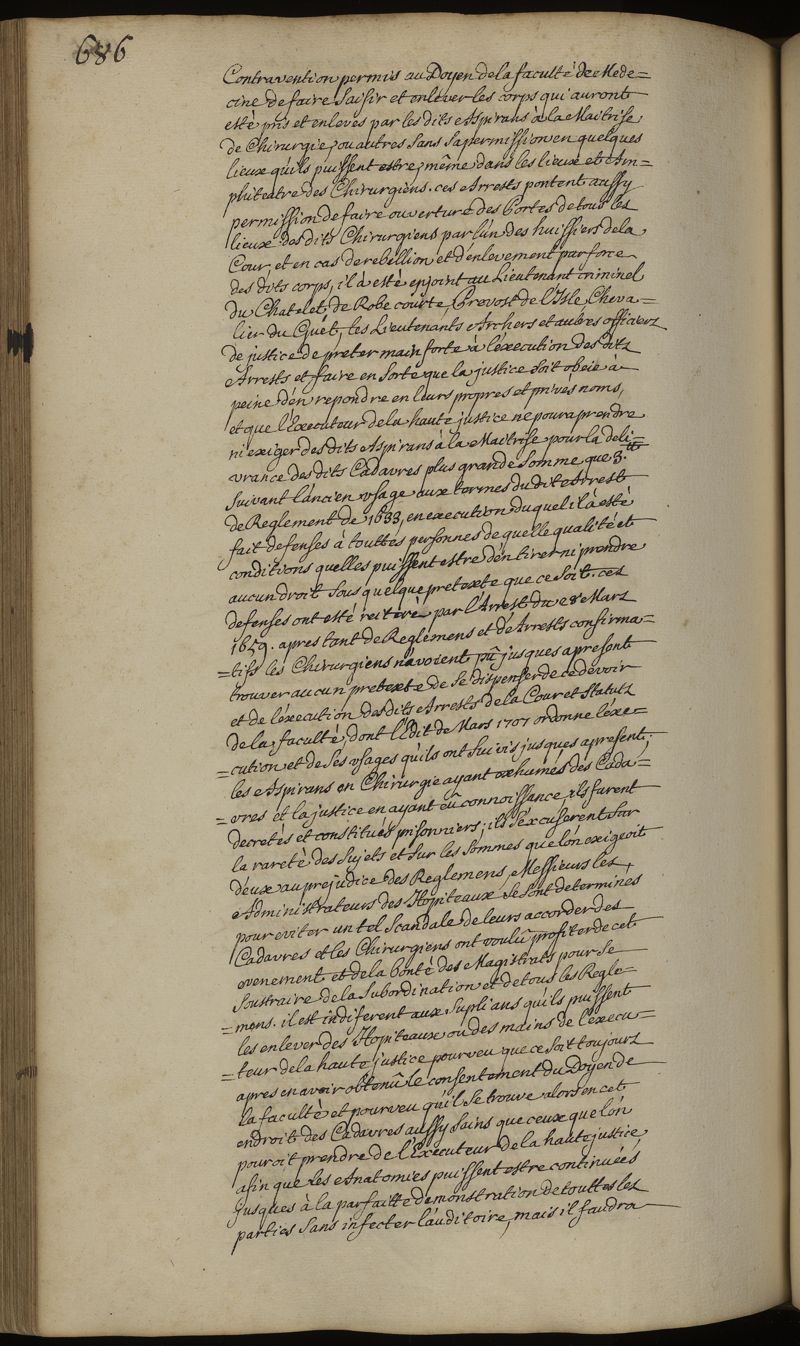 686
Contravention permis au Doyen de la faculté de Mede=
cine de faire saisir et enlever les corps qui auront
esté pris et enleves par les dits Aspirans à la Maitrise
de Chirurgie, ou autres sans sa permission en quelques
lieux qu'ils puissent estre, même dans les lieux et Am=
phiteatre des Chirurgiens. ces Arrests portent aussy
permission de faire ouverture des Portes de tous les
lieux des dits Chirurgiens par l'un des huissiers de la
Cour, et en cas de rebellion et d'enlevement par force
des dits corps, il à esté enjoint au Lieutenant criminel
du Chatelet, de Robe courte, Prevost de l'Isle, Cheva=
lier du Guét, les Lieutenants Archers et autres officiers
de justice de preter main forte à l'éxecution des dits
Arrests et faire en sorte que la justice soit obeie à
peine d'én repondre en leurs propres et privés noms,
et que l'Executeur de la haute justice ne poura prendre
ni exiger des dits Aspirans à la Maitrise pour la deli=
vrance des dits Cadavres plus grande somme que 3.tt
suivant l'áncien usage aux termes du dit Arrest
de Reglement de 1633, en execution du quel il à esté
fait defenses à touttes personnes de quelle qualité et
conditions quelles puissent estre d'én tirer ni prendre
aucun droit sous quelque pretexte que ce soit. ces
defenses ont esté reiteré par l'Arrest du 28 Mars
1659. apres tant de Reglémens et d'Arrests confirma=
=tifs les Chirurgiens n'avoient pû jusques apresent
trouver aucun pretexte de se dispenser de ce devoir
et de l'éxecution des dits Arrests de la Cour et Statuts
de la faculté, dont l'Edit de Mars 1707 ordonne l'éxe=
=cution et de ses usages qu'ils ont suivis jusques apresent;
les Aspirans en Chirurgie ayant exhumés des Cada=
=vres et la justice en ayant eû connoissance, ils furent
decretés et constitués prisonniers; ils s'éxcuserent sur
la rareté des Sujets et sur les sommes que l'ón exigeoit
d'eux au prejudice des Reglemens, Messieurs les
Administrateurs des Hopiteaux se sont determinés
pour eviter un tel scandale de leurs accorder des
Cadavres et les Chirurgiens ont voulû profiter de cet
evenement et de la bonté des Magistrats pour se
soustraire de la subordination et de tous les Regle=
=mens. il est indiferent aux Suplians qu'ils puissent
les enlever des Hopiteaux ou des mains de l'éxecu=
=teur de la haute justice pourveu que ce soit toujours
apres en avoir obtenû le consentement du Doyen de
la faculté et pourveu qu'il se trouve alors en cet
endroit des Cadavres aussy sains que ceux que l'ón
pouroit prendre de l'Executeur de la haute justice,
afin que les Anatomies puissent estre continuées
jusques à la parfaitte demonstration de touttes les
parties sans infecter l'áuditoire, mais il faudra